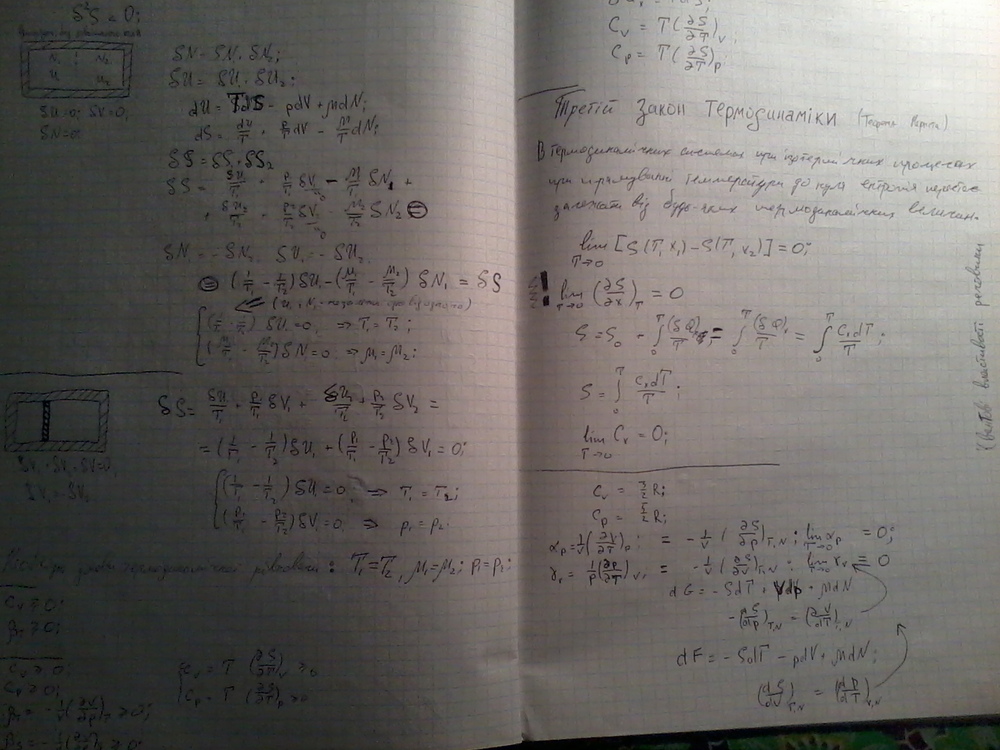 δ²S < 0;
δN = δN₁ + δN₂;
δU = δU₁ + δU₂;
dU = TdS - pdV + μdN;
dS = dU/T + p/T dV - μ/T dN;
δU=0; δV=0;
δN=0
δS = δS₁ + δS₂
δS = δU₁/T₁ + p₁/T₁ δV₁ - μ₁/T₁ δN₁ +
+ δU₂/T₂ + p₂/T₂ δV₂ - μ₂/T₂ δN₂ ⊜
δN₁ = -δN₂, δU₁ = -δU₂
⊜ (1/T₁ - 1/T₂) δU₁ - (μ₁/T₁ - μ₂/T₂) δN₁ = δS
(1/T₁ - 1/T₂) δU₁ = 0 ⇒ T₁ = T₂;
(μ₁/T₁ - μ₂/T₂) δN = 0 ⇒ μ₁ = μ₂;
δS = δU₁/T₁ + p₁/T₁ δV₁ + δU₂/T₂ + p₂/T₂ δV₂ =
= (1/T₁ - 1/T₂) δU₁ + (p₁/T₁ - p₂/T₂) δV₁ = 0;
δV₁ + δV₂ = δV = 0;
δV₁ = -δV₂
(1/T₁ - 1/T₂) δU₁ = 0 ⇒ T₁ = T₂;
(p₁/T₁ - p₂/T₂) δV₁ = 0 ⇒ p₁ = p₂;
умови термодинамічної рівноваги: T₁=T₂, μ₁=μ₂; p₁=p₂;
C_V ≥ 0;
β_T ≥ 0;
C_V ≥ 0;
C_p ≥ 0;
β_T = -1/V (∂V/∂p)_T ≥ 0;
C_V = T (∂S/∂T)_V ≥ 0
C_p = T (∂S/∂T)_p ≥ 0
C_V = T (∂S/∂T)_V;
C_p = T (∂S/∂T)_p
Третій закон термодинаміки (Теорема Нернста)
В термодинамічних системах при ізотермічних процесах
при прямуванні температури до нуля ентропія перестає
залежати від будь-яких термодинамічних величин.
lim T→0 [S(T, x₁) - S(T, x₂)] = 0;
! lim T→0 (∂S/∂x)_T = 0
S = S₀ + ∫₀ᵀ (δQ)ₓ/T = ∫₀ᵀ (δQ)ₓ/T = ∫₀ᵀ CₓdT/T;
S = ∫₀ᵀ CₓdT/T;
lim T→0 Cₓ = 0;
C_V = 3/2 R;
C_p = 5/2 R;
α_p = 1/V (∂V/∂T)_p; = -1/V (∂S/∂p)_T,N; lim T→0 α_p = 0;
γ_V = 1/p (∂p/∂T)_V; = -1/V (∂S/∂V)_T,N; lim T→0 γ_V = 0
dG = -SdT + Vdp + μdN
-(∂S/∂p)_T,N = (∂V/∂T)_p,N
dF = -SdT - pdV + μdN;
(∂S/∂V)_T,N = (∂p/∂T)_V,N
властивості речовини